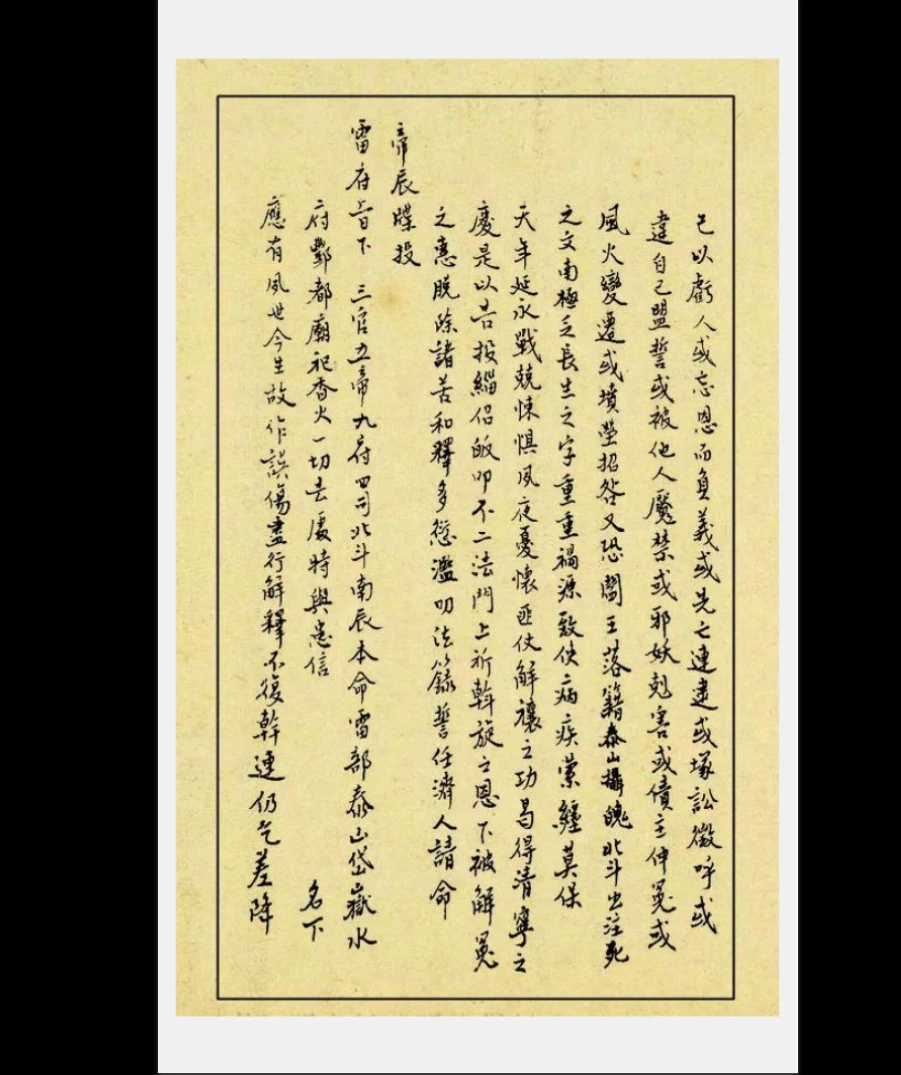 己以虧人或忘恩而負義或先亡連逮或塚訟徵呼或
違自己盟誓或被他人魘禁或邪妖剋害或債主伸冤或
風火變遷或墳塋招咎又恐閻王落籍泰山攝魄北斗出注死
之文南極乏長生之字重重禍源致使病疾縈纏莫保
天年延永戰兢悚惧夙夜憂懷匪仗解禳之功曷得清寧之
慶是以告投緇侶皈叩不二法門上祈斡旋之恩下被解冤
之憲脫除諸苦和釋多愆濫叨法籙誓任濟人請命
帝辰牒投
雷府旨下 三官五帝九府四司北斗南辰本命雷部泰山岱嶽水
府酆都廟祀香火一切去處特與患信 名下
應有夙世今生故作誤傷盡行解釋不復幹連仍乞差降